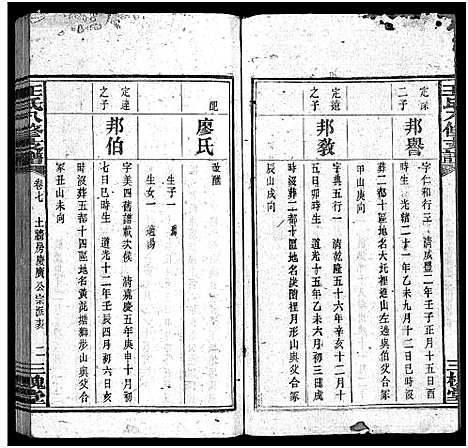 王氏八修支譜
三槐堂
定深
二子
邦譽
字仁和行三 清咸豐二年壬子正月十五日酉
時生 光緒二十一年乙未九月十二日巳時歿
葬二都十區地名大坑裡道山左邊與父合
甲山庚向
邦敎
字典五行一 清乾隆五十六年辛亥十二月十
五日卯時生 道光十五年乙未六月初三日
時歿葬二都十區地名 裡形山與父合
辰山戌向
配
廖氏
改醮
生子一
生女一 適湯
定達
之子
邦伯
字美四舊譜載次侯 清嘉慶五年庚申十月初
七日巳時生 道光十二年壬辰四月初六日亥
時歿葬五都十四區地名黃泥塘獅形山與父合
冢丑山未向
王氏八修支譜
卷七
土牆房慶廣公宗派表
二
三槐堂